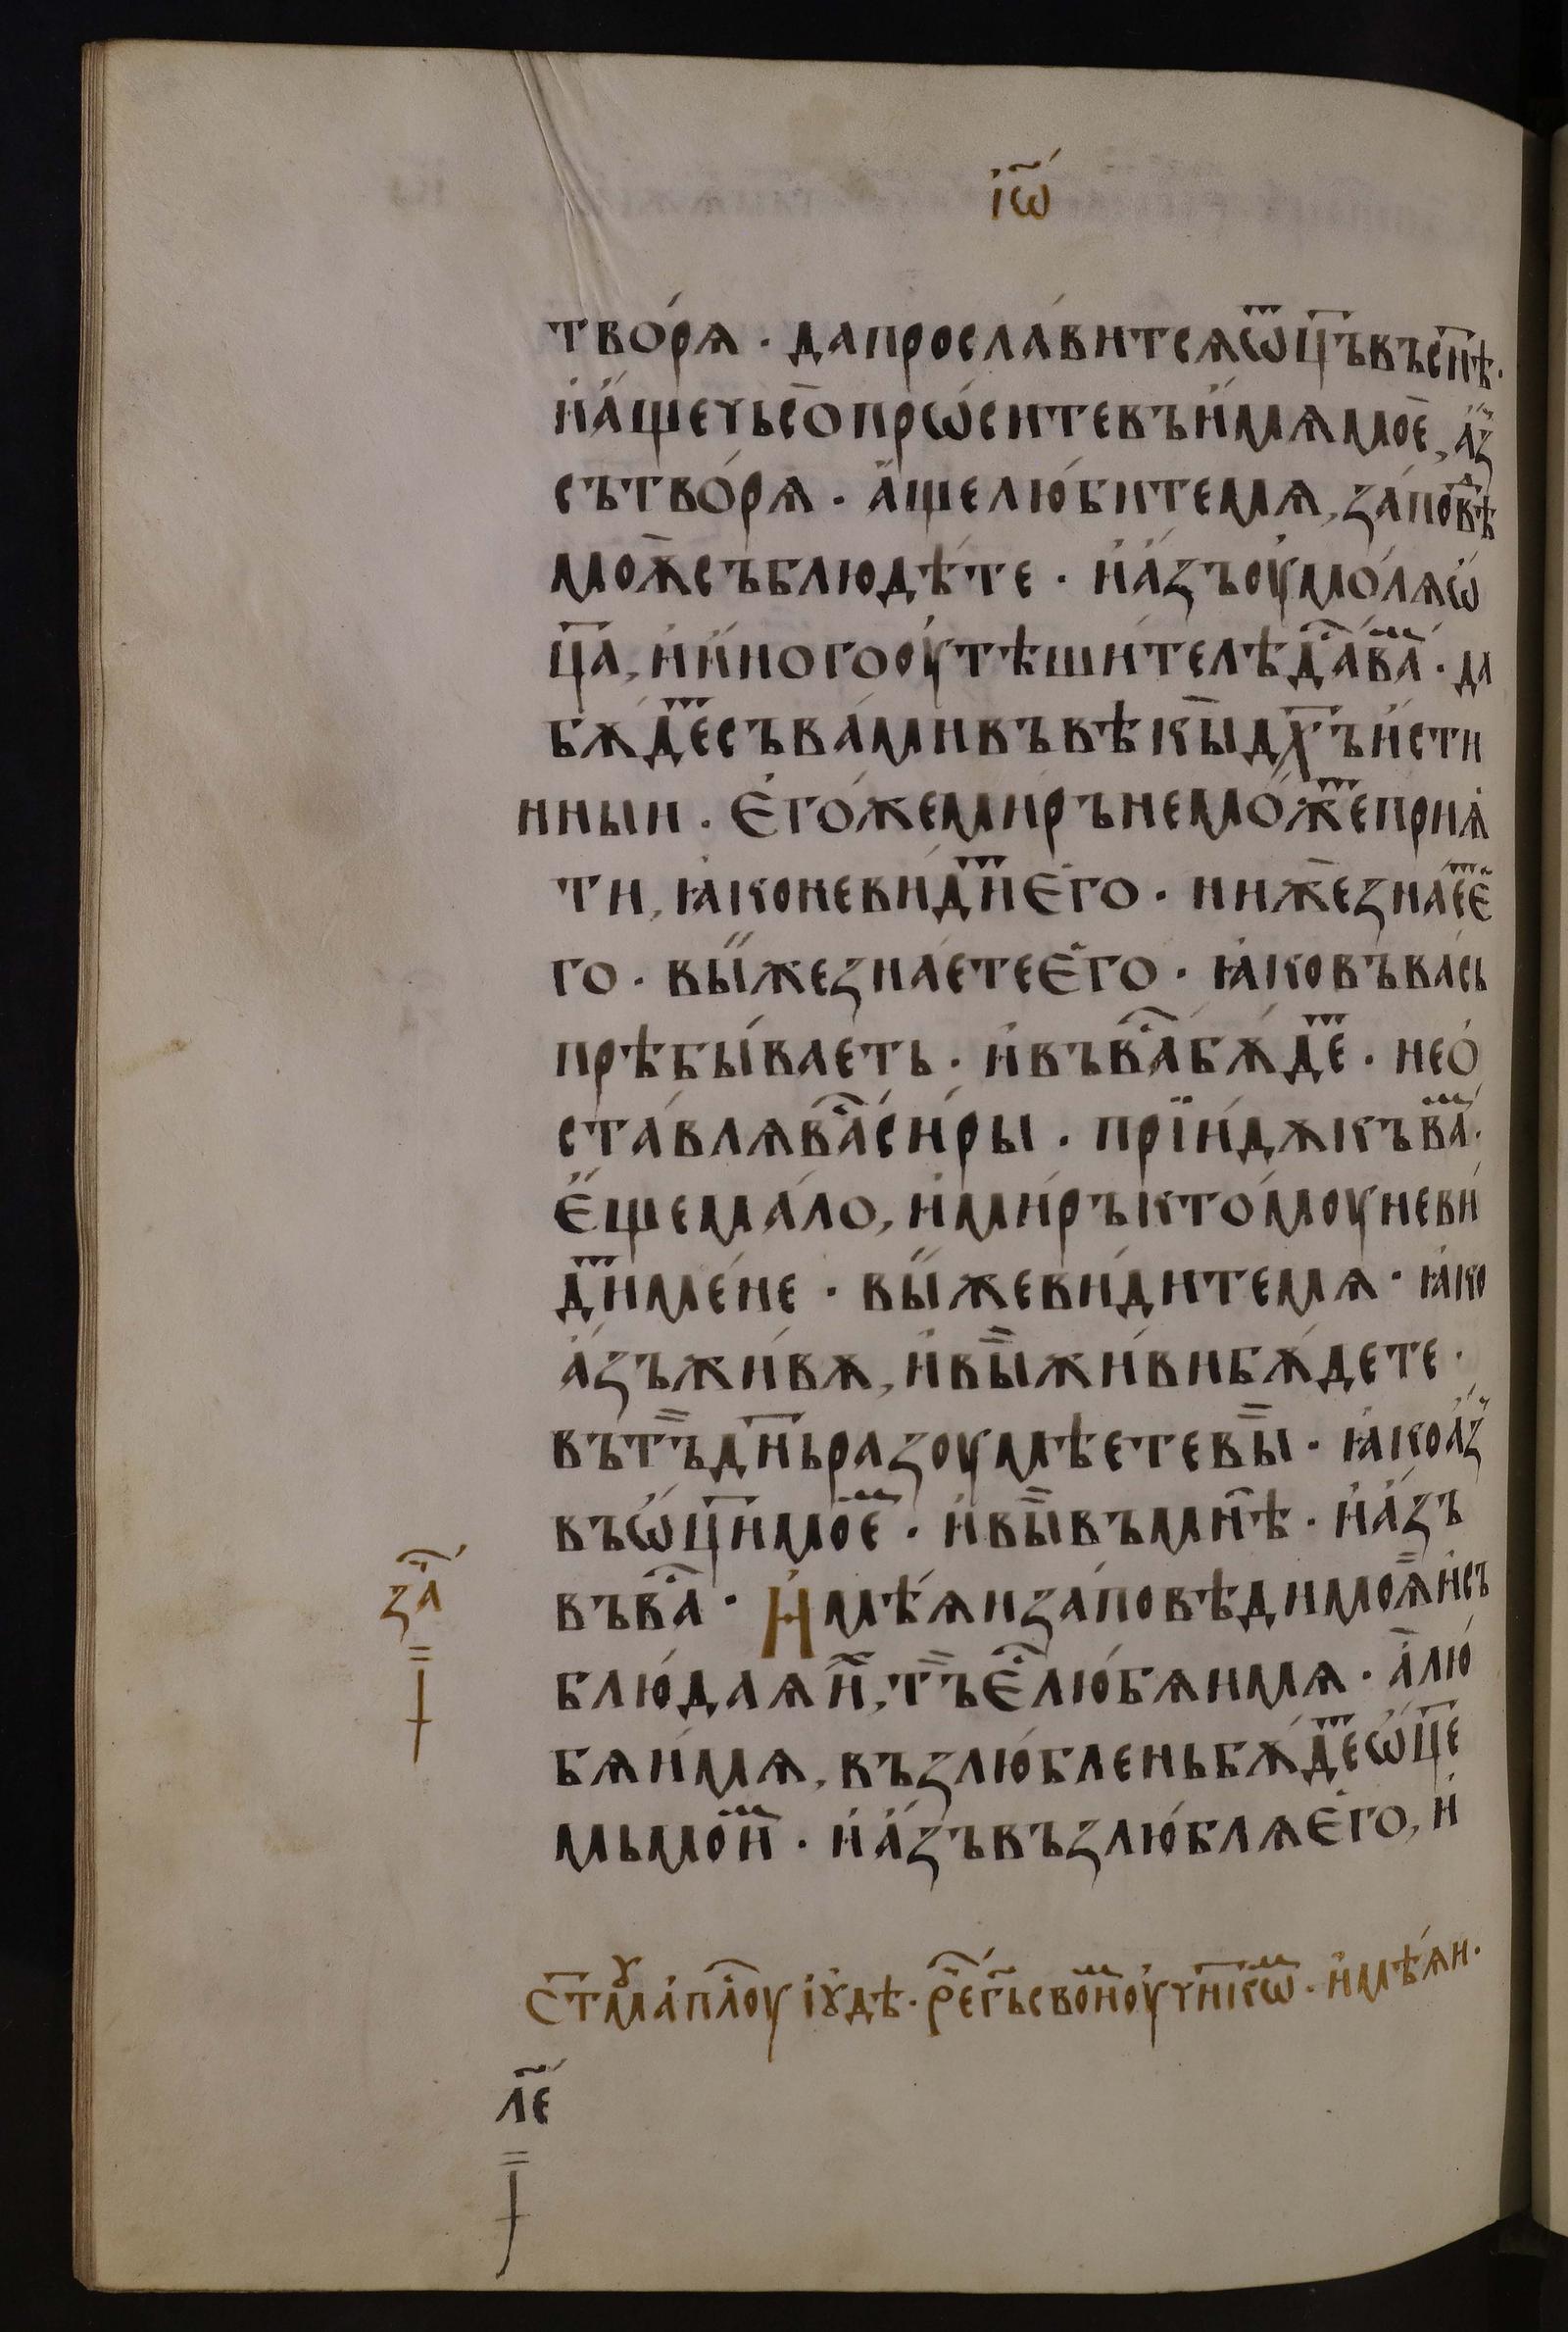 і҆ѡ҃
творѧ · дапрославитсѧѿц҃ъвъсн҃ѣ ·
ѝа҆щечьсопрѡ́ситевъи҆мѧмое҆, а҆з
сътво́рѧ · а҆щелю́битемѧ, за́повѣⷣ
моѧ҆съблюдѣ́те · ѝа҆зъоу҆мо́лѧѡ҆
ц҃а, ѝи҆ногооу҆тѣши́телѣда́ⷭ҇ваⷨ · да
бѫ́деⷮсъва́мивъвѣкы̀дх҃ъи҆сти
нныи · є҆го́жемирънемо́жеⷮприѧ҆
ти, ꙗ҆коневи́диⷮє҆го · ниже́зна́еⷮє҆
го · вы́жезна́етеє҆го · ꙗ҆ковъва́сь
прѣбы́ваеть · ѝвъва́ⷭ҇бѫ́деⷮ · нео҆
ста́влѧва́ⷭ҇си́ры · прїи́дѫкъва́ⷨ ·
є҆щема́ло, ѝми́ръкто́моуневи́
диⷮмене · вы́жеви́дитемѧ · ꙗ҆ко
а҆зъжи́вѫ, ѝвы̀жи́вибѫ́дете ·
вътъ̀дн҃ьразоумѣ́етевы̀ · ꙗ҆коа҆з
въѡ҆ц҃имоеⷨ · ѝвы̀въмн҃ѣ · ѝа҆зъ
въва́ⷭ҇ · И҆мѣ́ѧиза́повѣдимоѧ҆ѝсъ
блю́даѧи҆ⷯ, тъ̀є҆ⷭ҇лю́бѧимѧ · а҆лю́
бѧи́мѧ, възлю́бленьбѫ́деⷮѡ҆ц҃е
мьмоиⷨ · ѝа҆зъвъзлю́блѧє҆го, ѝ
за҃ⷱ
ст҃моуⷹа҆пⷭ҇лоуі҆ꙋ́дѣ · рⷱ҇егⷭ҇ьсвоиⷨоу҆чн҃кѡⷨ · и҆мѣ́ѧи ·
л҃е